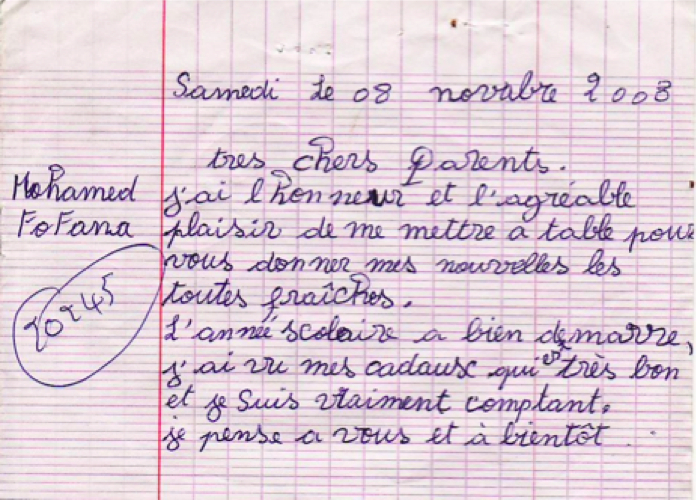 Samedi Le 08 novabre 2008
tres chers parents.
Mohamed
FoFana
20245
j'ai l'honneur et l'agréable
plaisir de me mettre a table pour
vous donner mes nouvelles les
toutes fraîches.
L'année scolaire a bien demarre,
j'ai vu mes cadaux qui est très bon
et je Suis vraiment comptant.
je pense a vous et à bientôt ..